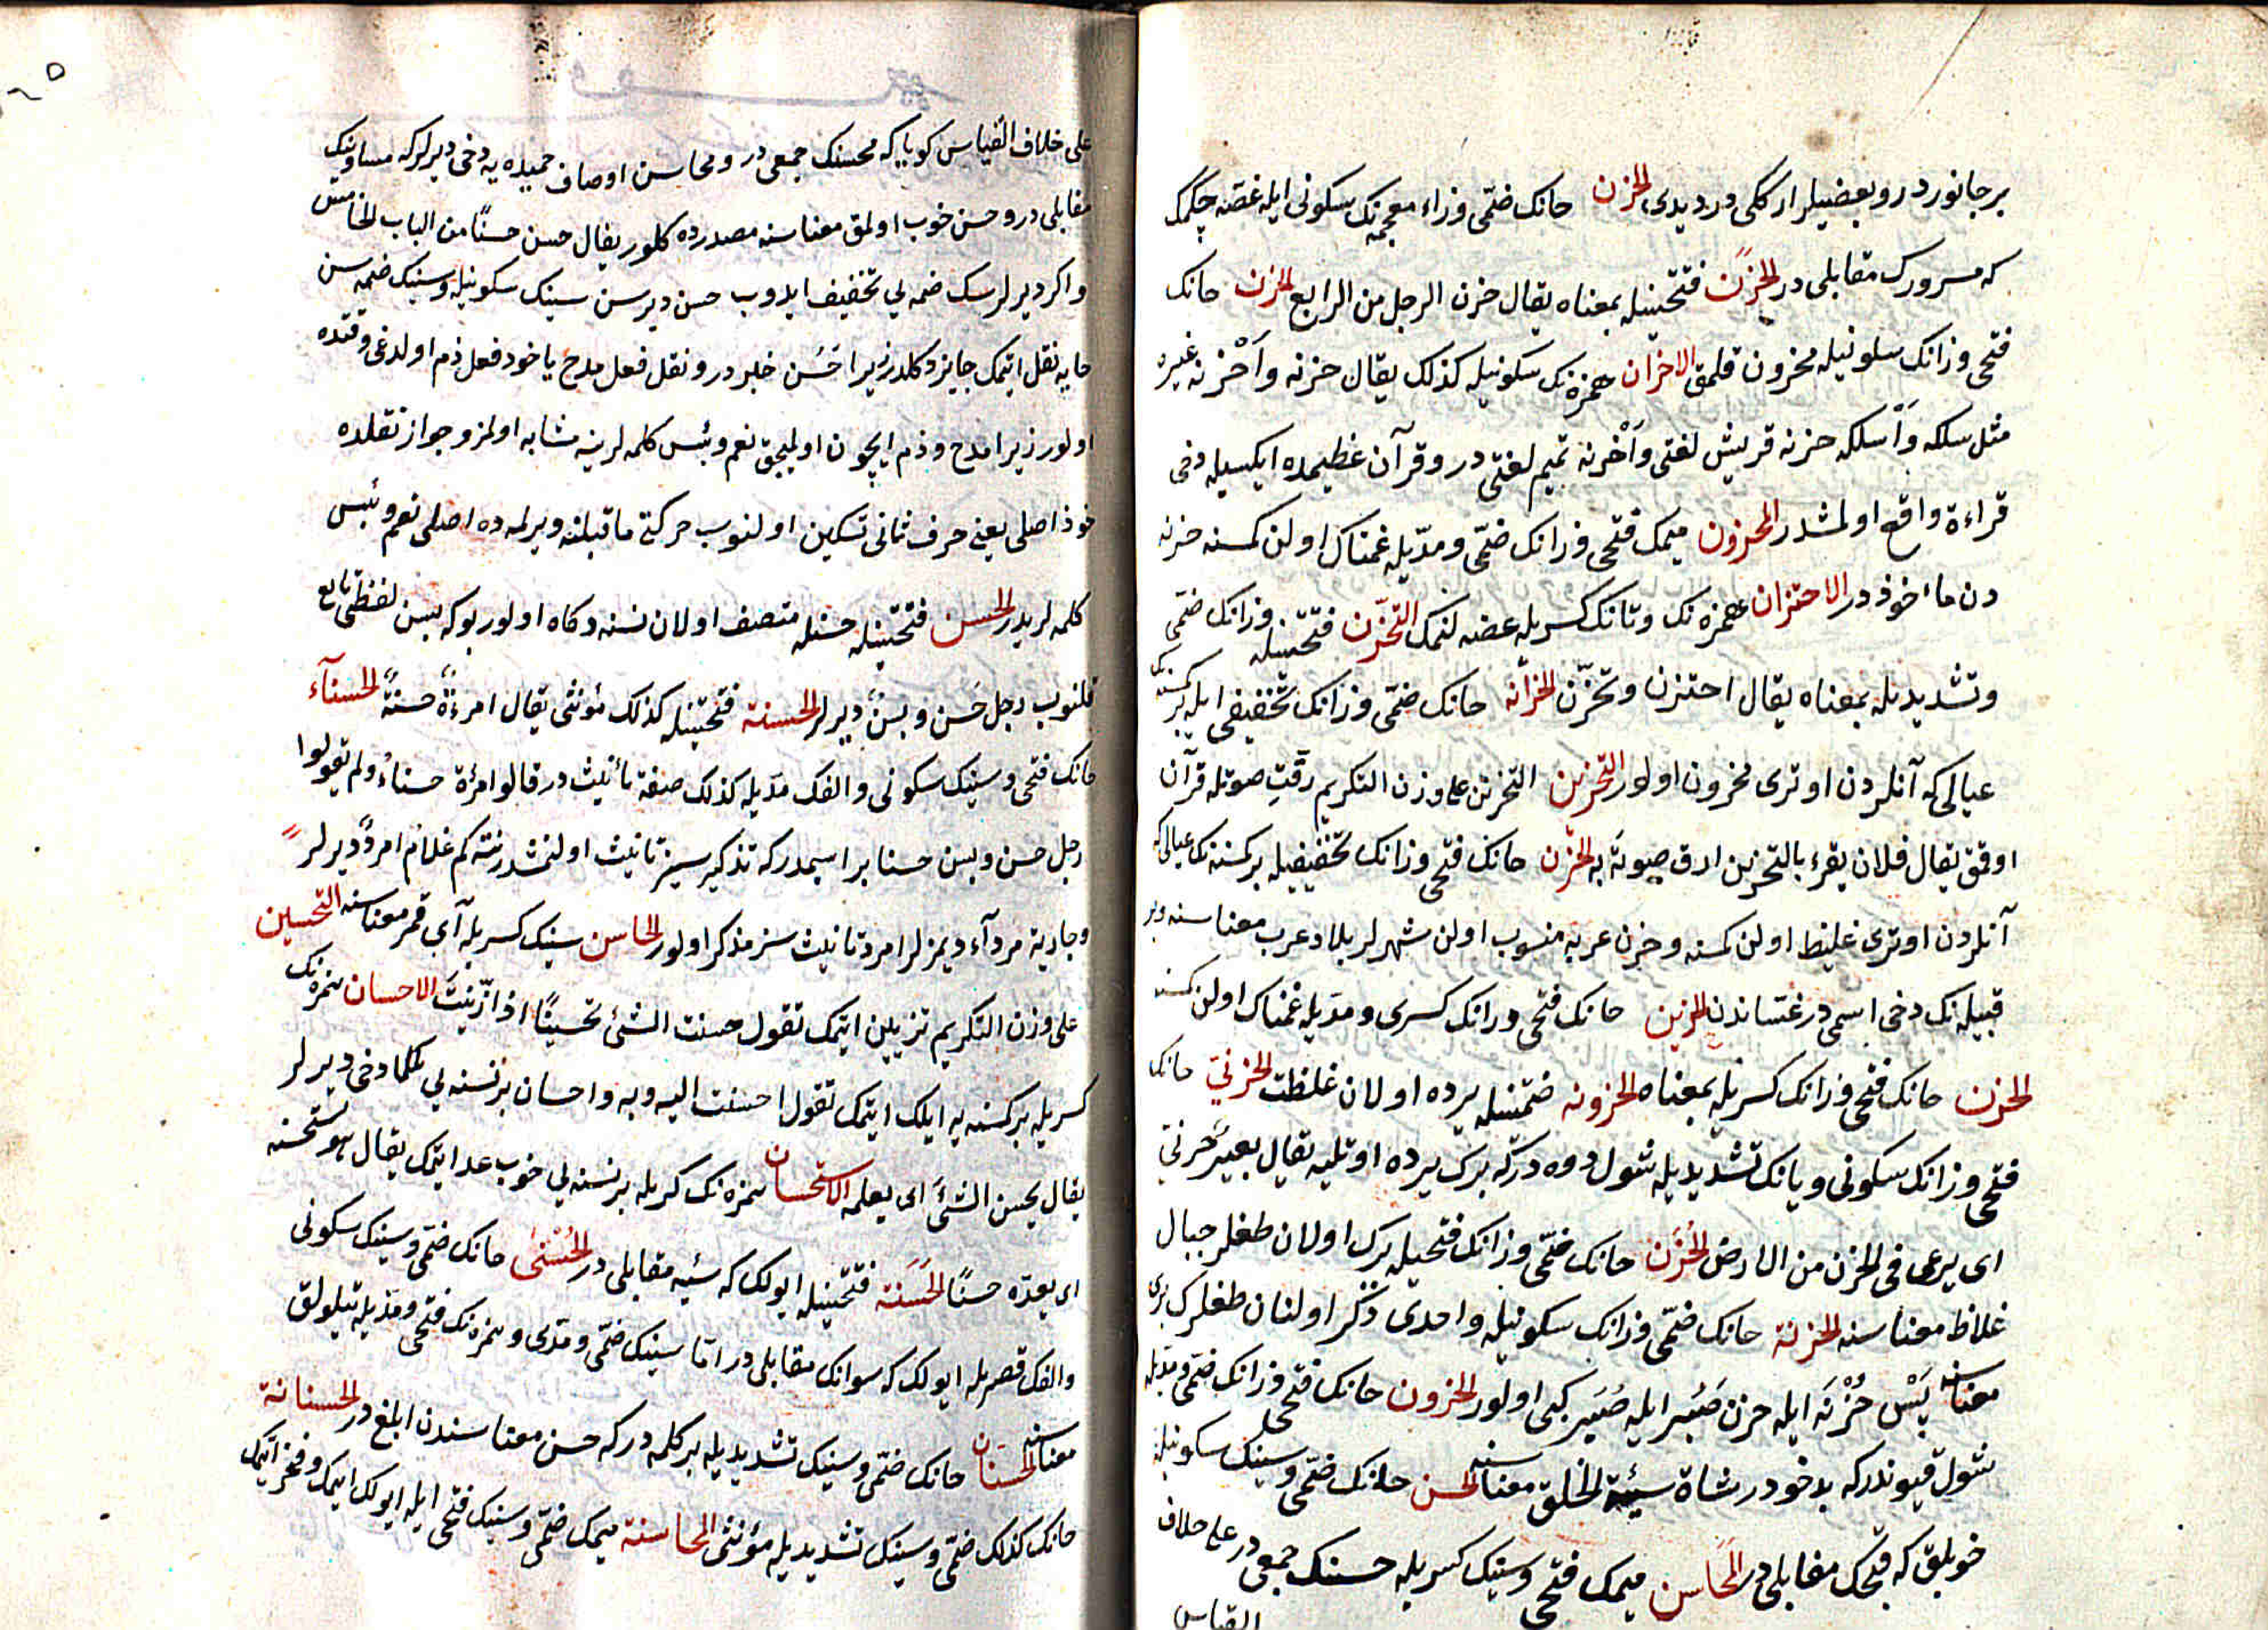 بر جانوردر و بعضیلر ارککی در دیدی الحزن حانک ضمّی و زاء معجمه نک سکونی ایله غصّه چکمک
که سرورک مقابلی در الحَزَن فتحتینله بمعناه یقال حزن الرجل من الرابع الحزن حانک
فتحی و زانک سکونیله محزون قلمق الاحزان همزه نک سکونیله کذلک یقال حزنه و اَحْزنه غیره
مثل سلکه و اَسلکه حزنه قریش لغتی و اَحْزنه تمیم لغتی در و قرآن عظیمده ایکسیله دخی
قراءة واقع اولمشدر المحزون میمک فتحی و زانک ضمّی و مدّیله غمناک اولن کمسنه حزنه
دن ماخوذدر الاحتزان همزه نک و تانک کسریله غصه لنمک التحزّن فتحتینله و زانک ضمّی
و تشدیدیله بمعناه یقال احتزن و تحزّن الحزانه حانک ضمّی و زانک تخفیفی ایله بر کسنه نک
عیالی که آنلردن اوتری محزون اولور التحزین التحزین علی وزن التکریم رقّت صوتله قرآن
اوقمق یقال فلان یقرء بالتحزین ارق صوتَه به الحزن حانک فتحی و زانک تخفیفیله بر کسنه نک عیالی که
آنلردن اوتری غلیظ اولن کمسنه و حزن عربه منسوب اولن شهرلر بلاد عرب معناسنه و بر
قبیله نک دخی اسمی در غسّاندن الحزین حانک فتحی و زانک کسری و مدّیله غمناک اولن کمسنه
الحزن حانک فتحی و زانک کسریله بمعناه الحزونه ضمّتینله یرده اولان غلظت الحزنیّ حانک
فتحی و زانک سکونی و یانک تشدیدیله شول دوه درکه برک یرده اوتلیه یقال بعیر حَزنیّ
ای یرعی فی الحزن من الارض الحُزَن حانک ضمّی و زانک فتحیله برک اولان طغلر جبال
غلاظ معناسنه الحزنة حانک ضمّی و زانک سکونیله واحدی ذکر اولنان طغلرک بری
معناسنه پَسْ حُزْنَه ایله حزن صُبْر ایله صُبَر کبی اولور الحزون حانک فتحی و زانک ضمّی و مدّیله
شول قیوندرکه بدخودر شاة سیّئة الخلق معناسنه الحسن حانک ضمّی و سینک سکونیله
خوبلق که قبحک مقابلی در المَحَاسن میمک فتحی و سینک کسریله حسنک جمعی در علی خلاف
القیاس
علی خلاف القیاس کویا که محسنک جمعی در و محاسن اوصاف حمیده یه دخی دیرلر که مساوینک
مقابلی در و حسن خوب اولمق معناسنه مصدرده کلور یقال حسن حسنًا من الباب الخامس
و اکر دیرلرسک ضمه یی تخفیف ایدوب حسن دیرسن سینک سکونیله و سینک ضمه سن
حایه نقل ایتمک جایز دکلدر زیرا حَسُن خبردر و نقل فعل مدح یاخود فعل ذم اولدغی وقتده
اولور زیرا مدح و ذم ایچون اولیجق نعم و بئس کلمه لرینه مشابه اولمز و جواز نقلده
خوذ اصلی یعنی حرف ثانی تسکین اولنوب حرکتی ماقبلنه ویرلمه ده اصلی نعم و بئس
کلمه لریدر الحسن فتحتینله حسنله متصف اولان نسنه و کاه اولور بوکه بسن لفظی تابع
قلنوب رجل حَسن و بسن دیرلر الحسنة فتحتینله کذلک مؤنثی یقال امرءة حسنةٌ الحسنآء
حانک فتحی و سینک سکونی و الفک مدّیله کذلک صفة تأنیث در قالوا امرأة حسناءُ و لم یقولوا
رجل حسن و بسن حسنا بر اسمدرکه تذکیرسیز تانیث اولنمشدر نته کم غلام امردٌ دیرلر
و جاریة مردآء دیمزلر امرد تانیث سز مذکر اولور الحاسن سینک کسریله آی قمر معناسنه التحسین
علی وزن التکریم تزیین ایتمک تقول حسنت الشئ تحسینًا اذا زیّنتَ الاحسان همزه نک
کسریله بر کسنه یه ایلک ایتمک تقول احسنت الیه و به و احسان بر نسنه یی بلمکه دخی دیرلر
یقال یحسن الشئَ ای یعلمه الاستحسان همزه نک کسریله بر نسنه یی خوب عد ایتمک یقال هو یستحسنه
ای یعدّه حسنًا الحَسَنة فتحتینله ایولک که سیّئه مقابلی در الحُسْنٰی حانک ضمّی و سینک سکونی
و الفک قصریله ایولک که سوانک مقابلی در امّا سینک ضمّی و مدّی و همزه نک فتحی و مدّیله یتلولق
معناسنه الحسّان حانک ضمّی و سینک تشدیدیله بر کلمه درکه حسن معناسندن ابلغ در الحسنانة
حانک کذلک ضمّی و سینک تشدیدیله مؤنثی المحاسنة میمک ضمّی و سینک فتحی ایله ایولک ایتمک و فخر ایتمک